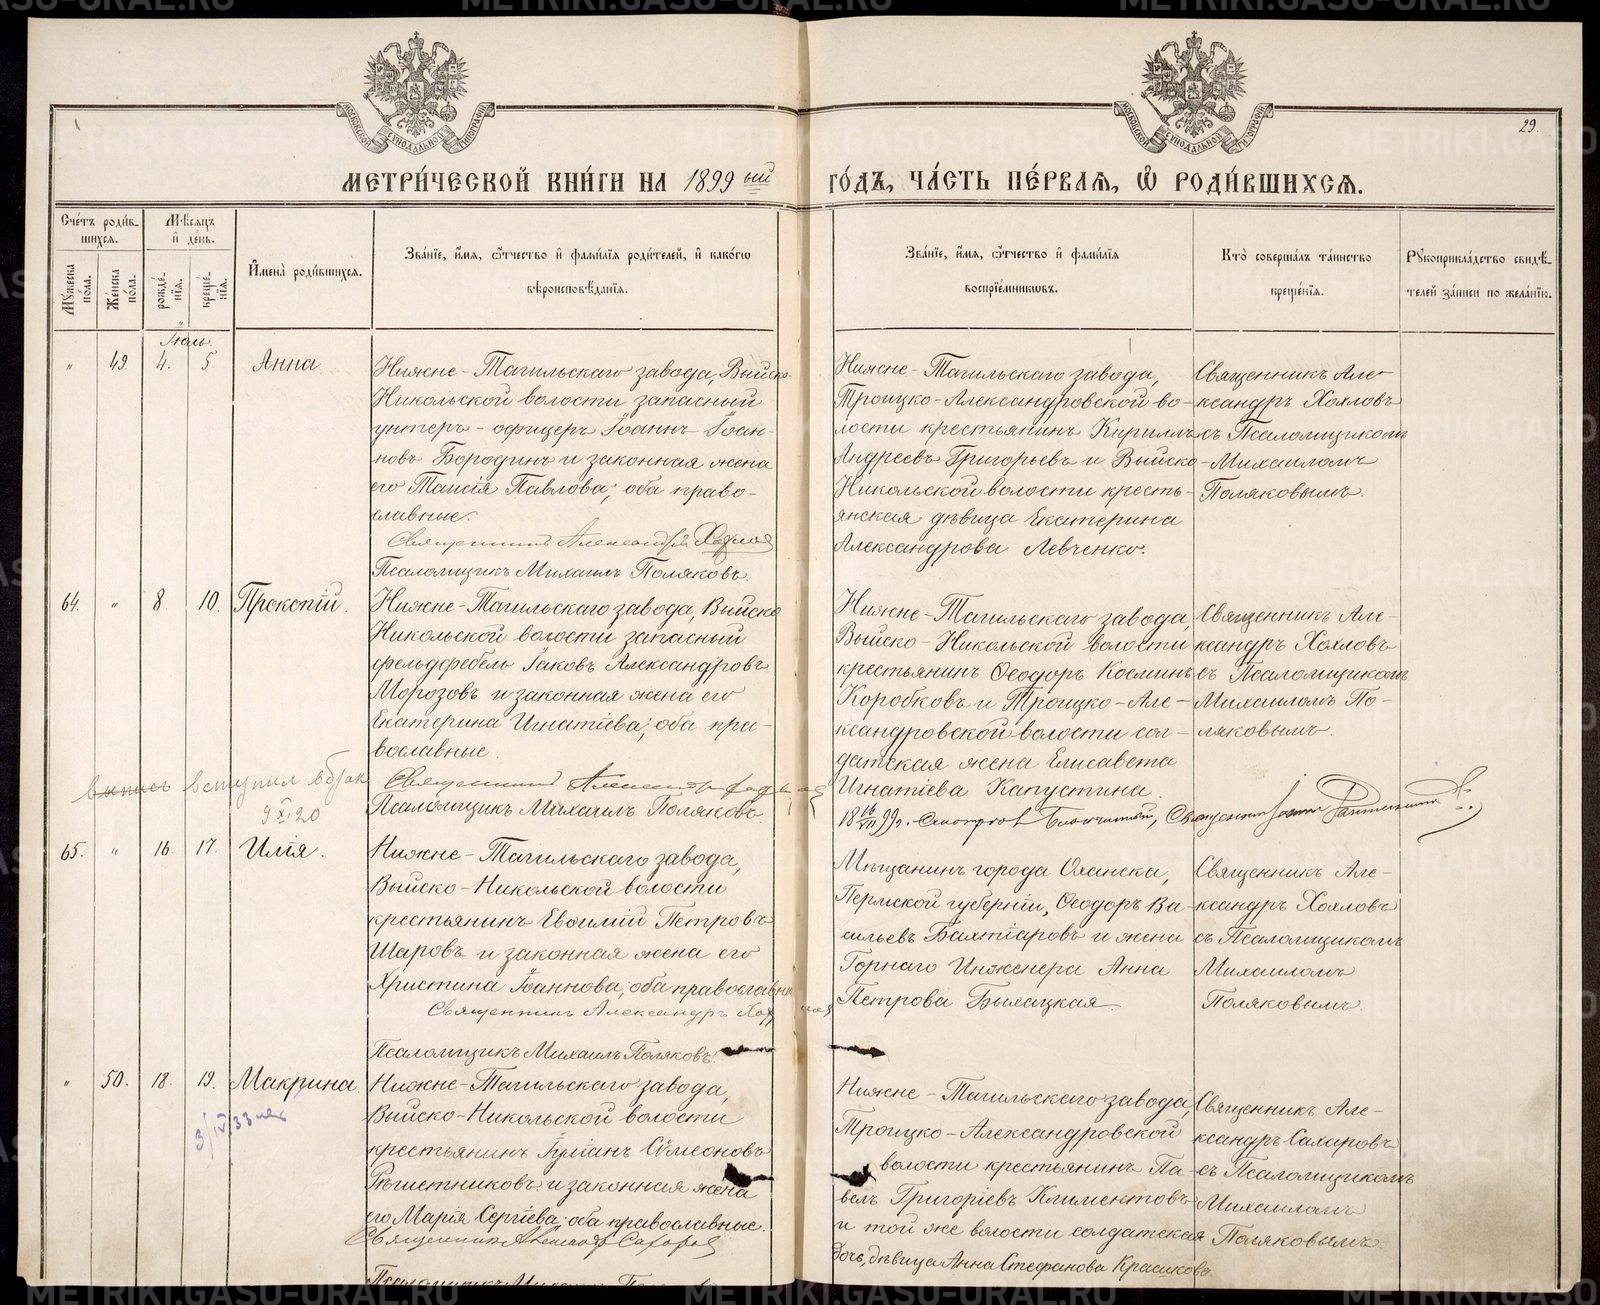 29.
МЕТРИ́ЧЕСКОЙ КНИ́ГИ НА 1899 ый ГО́ДЪ, ЧА́СТЬ ПЕ́РВАЯ, Ѡ РОДИ́ВШИХСЯ.
Сче́тъ роди́в-
шихся.
Мѣ́сяцъ
и҆ де́нь.
Мꙋ́жеска по́ла.
Же́нска по́ла.
рожде́-
нїя.
креще́-
нїя.
И҆мена̀ роди́вшихся.
Зва́нїе, и҆́мя, ѻ҆́тчество и҆ фами́лїя роди́телей, и҆ како́гѡ
вѣроисповѣ́данїя.
Зва́нїе, и҆́мя, ѻ҆́тчество и҆ фами́лїя
воспрїе́мникѡвъ.
Кто̀ соверша́лъ та́инство
креще́нїя.
Рꙋкоприкла́дство свидѣ́-
телей за́писи по жела́нїю.
Іюль.
" 49. 4. 5. Анна.
Нижне-Тагильскаго завода, Выйско-
Никольской волости запасный
унтеръ-офицеръ Іоаннъ Іоан-
новъ Бородинъ и законная жена
его Таисія Павлова; оба право-
славные.
Священникъ Александръ Хохлов
Псаломщикъ Михаилъ Поляковъ.
Нижне-Тагильскаго завода,
Троицко-Александровской во-
лости крестьянинъ Кириллъ
Андреевъ Григорьевъ и Выйско-
Никольской волости кресть-
янская дѣвица Екатерина
Александрова Левченко.
Священникъ Але-
ксандръ Хохловъ
съ Псаломщикомъ
Михаиломъ
Поляковымъ.
64. " 8. 10. Прокопій.
Нижне-Тагильскаго завода, Выйско
Никольской волости запасный
фельдфебель Іаковъ Александровъ
Морозовъ и законная жена его
Екатерина Игнатіева; оба пра-
вославные.
Священникъ Александръ Хохлов
Псаломщикъ Михаилъ Поляковъ.
выпись вступил в брак
9 XI 20
Нижне-Тагильскаго завода,
Выйско-Никольской волости
крестьянинъ Ѳеодоръ Косминъ
Коробковъ и Троицко-Але-
ксандровской волости сол-
датская жена Елисавета
Игнатіева Капустина.
Священникъ Але-
ксандръ Хохловъ
съ Псаломщикомъ
Михаиломъ По-
ляковымъ.
Священникъ Іоаннъ
65. " 16. 17. Илія.
Нижне-Тагильскаго завода,
Выйско-Никольской волости
крестьянинъ Евѳимій Петровъ
Шаровъ и законная жена его
Христина Іоаннова, оба православные
Священникъ Александръ Хохлов
Псаломщикъ Михаилъ Поляковъ.
Мѣщанинъ города Оханска,
Пермской губерніи, Ѳеодоръ Ва-
сильевъ Бахтіаровъ и жена
Горнаго Инженера Анна
Петрова Былацкая.
Священникъ Але-
ксандръ Хохловъ
съ Псаломщикомъ
Михаиломъ
Поляковымъ.
" 50. 18. 19. Макрина.
3/IV 33
Нижне-Тагильскаго завода,
Выйско-Никольской волости
крестьянинъ Іуліанъ Сѵмеоновъ
и законная жена
его Марія Сергіева; оба православные.
Священникъ Александръ Сахаров
Нижне-Тагильскаго завода,
Троицко-Александровской
волости крестьянинъ Па-
велъ Григоріевъ Климентовъ
и той же волости солдатская
дочь, дѣвица Анна Стефанова Красикова
Священникъ Але-
ксандръ Сахаровъ
съ Псаломщикомъ
Михаиломъ
Поляковымъ.
METRIKI.GASO-URAL.RU